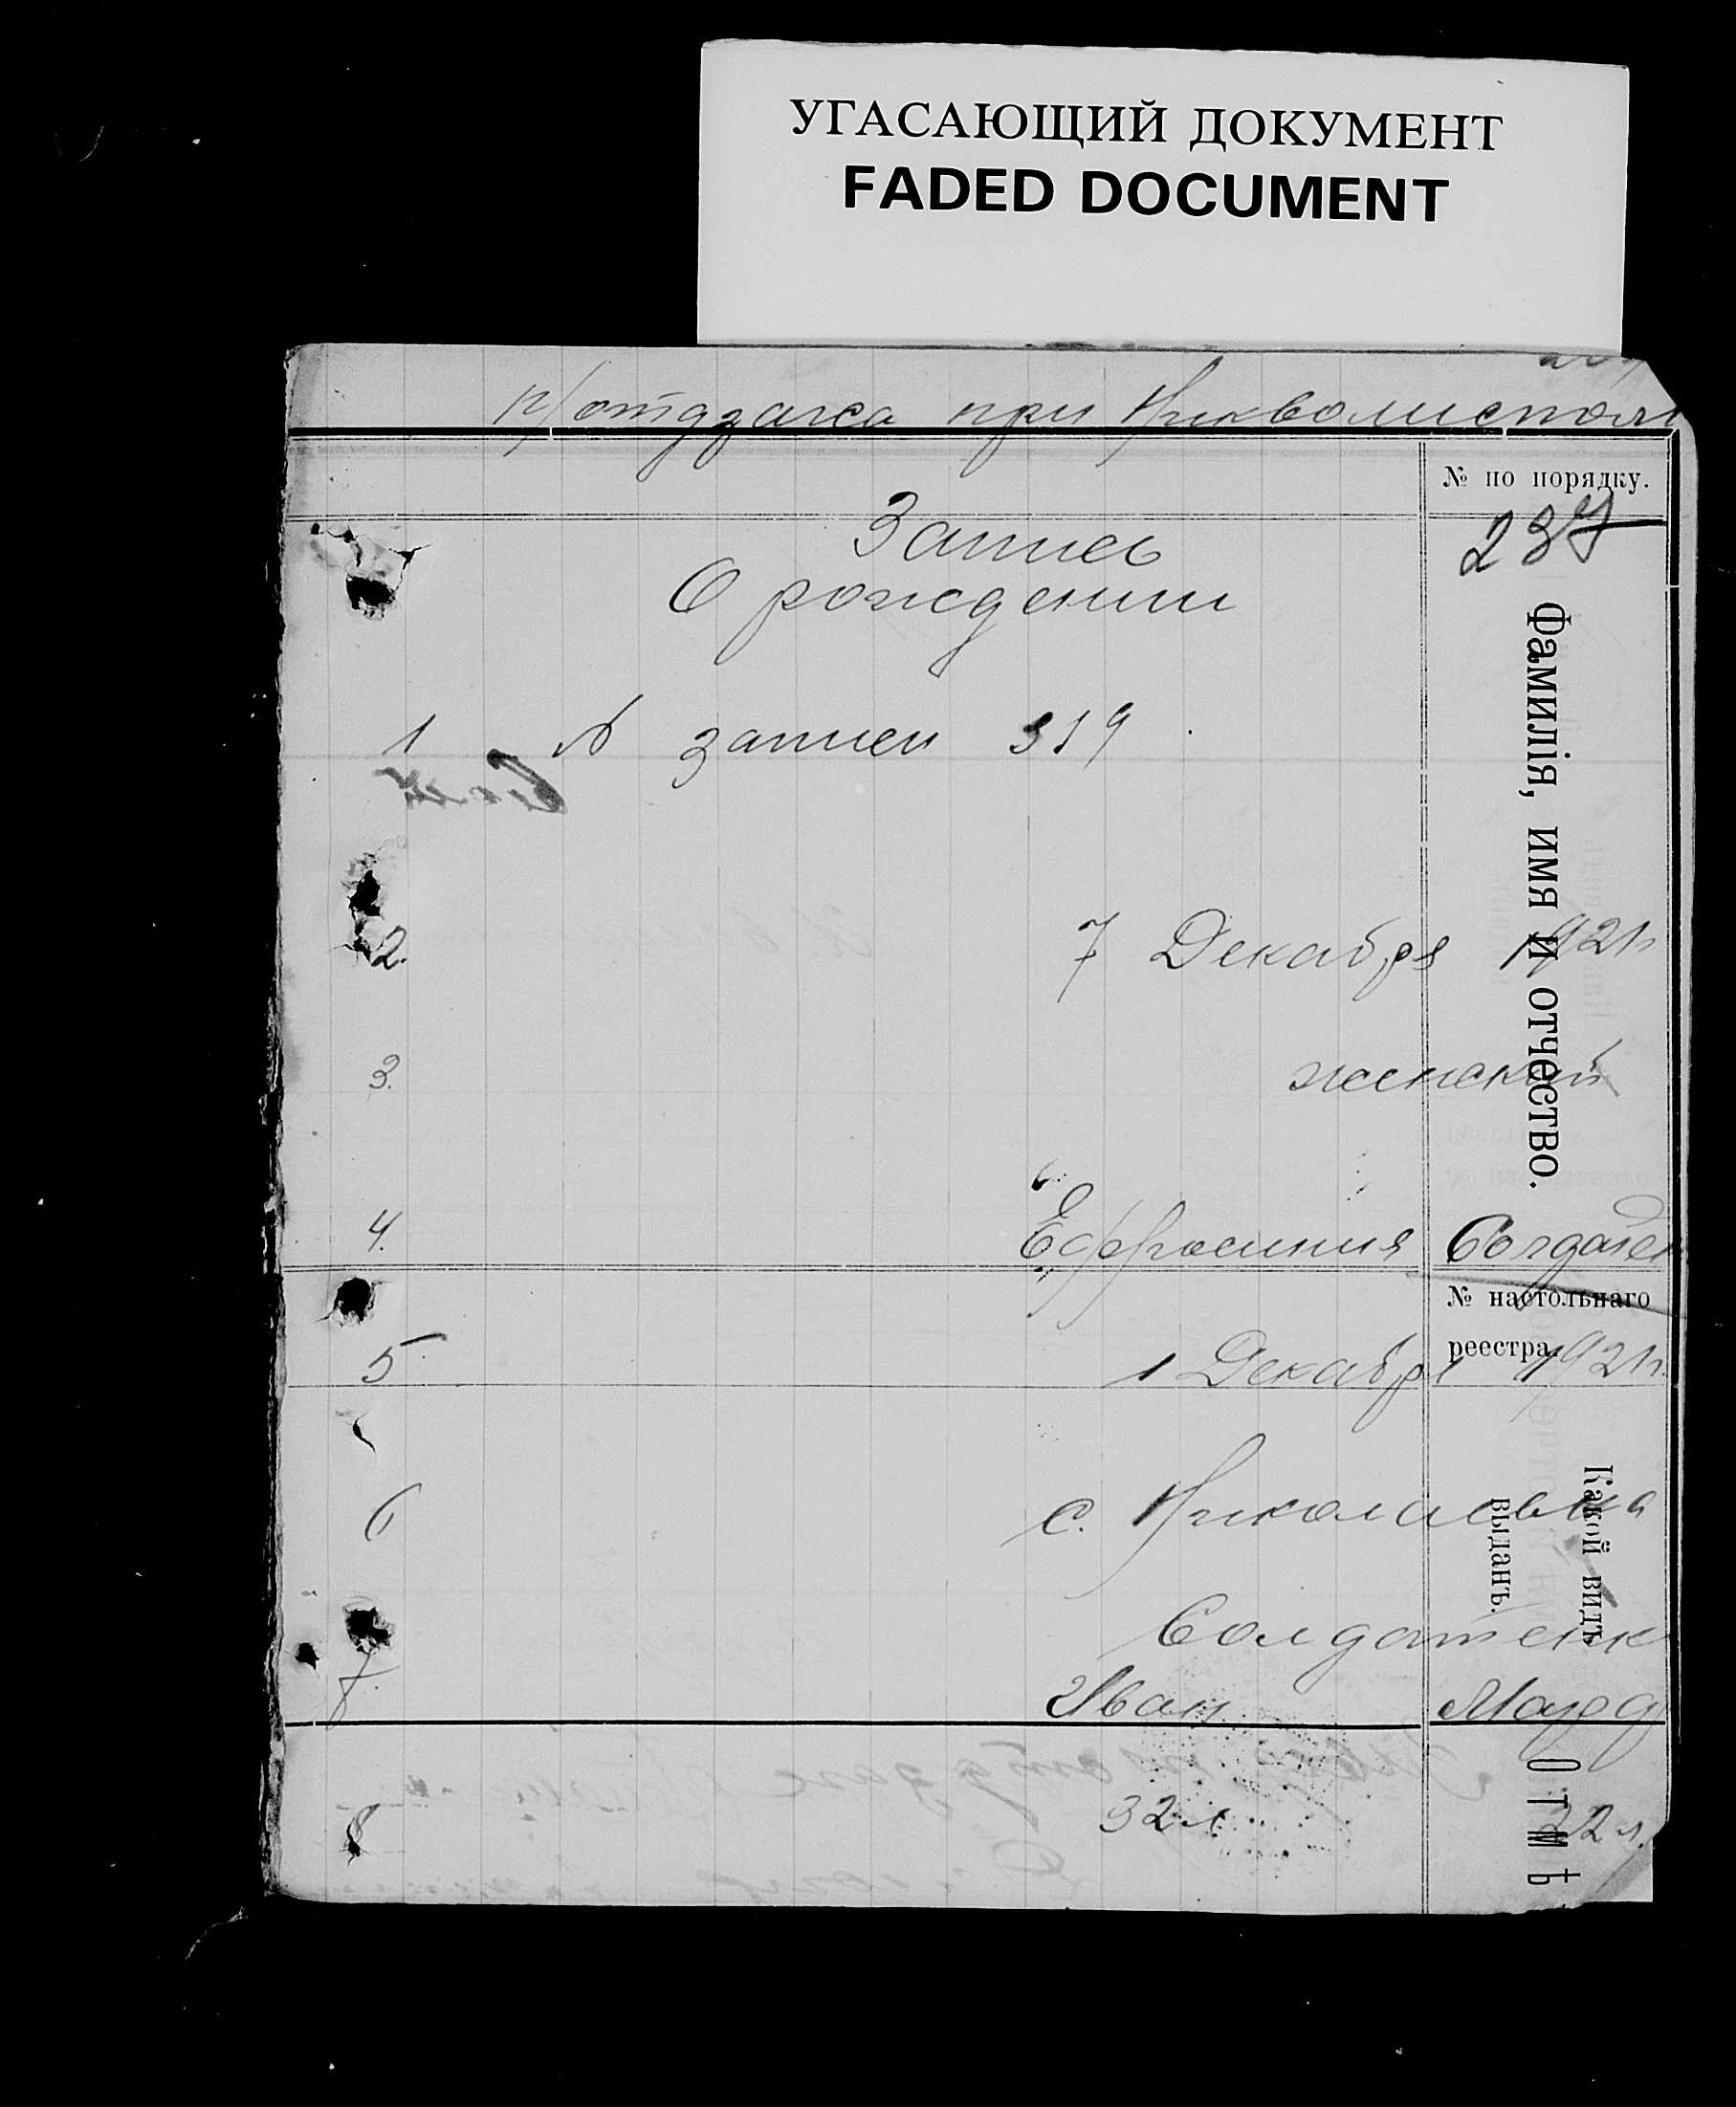 УГАСАЮЩИЙ ДОКУМЕНТ
FADED DOCUMENT
п/отдзагса при Никволисполк
№ по порядку.
237
Запись
О рождении
Фамилія, имя и отчество.
1 № записи 319
2. 7 Декабря 1921г
3. женский
4. Ефросиния Солдатен
№ настольнаго
реестра.
5 1 Декабря 1921г.
6 с. Николаевка
Какой видъ
выданъ.
Солдатенк
7. Иван
8 32 л 22 л.
Отмѣ